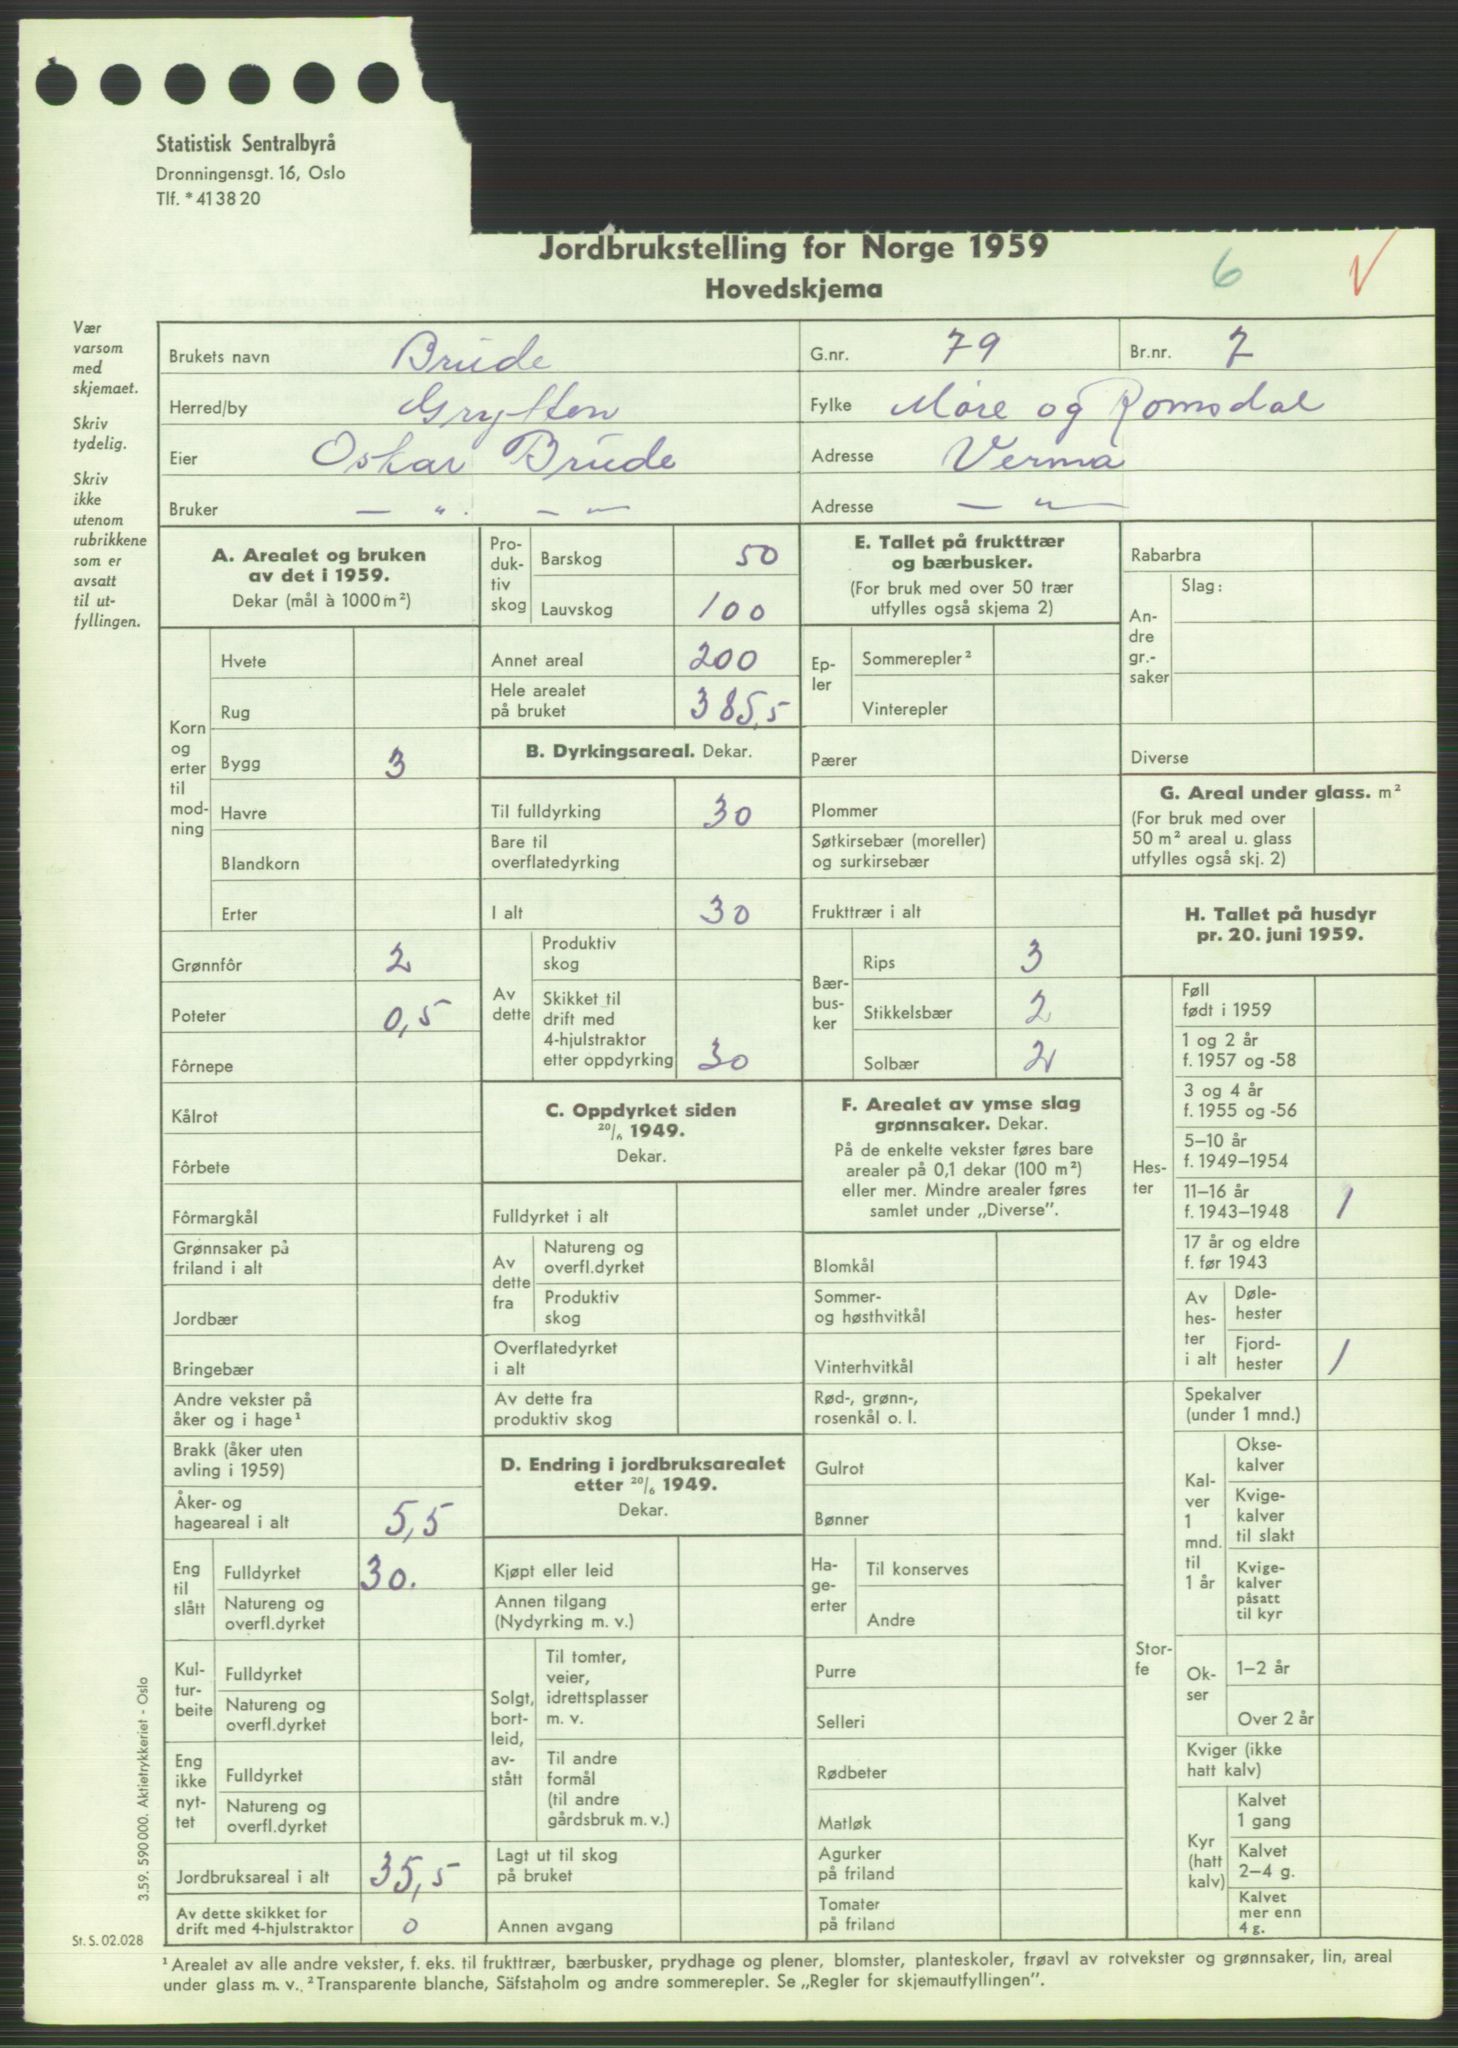 Statistisk Sentralbyrå
Dronningensgt. 16, Oslo
Tlf. * 41 38 20
Jordbrukstelling for Norge 1959
Hovedskjema
6 V
Vær varsom med skjemaet.
Skriv tydelig.
Skriv ikke utenom rubrikkene som er avsatt til ut-fyllingen.
Brukets navn Brude G.nr. 79 Br.nr. 7
Herred/by Grytten Fylke Møre og Romsdal
Eier Oskar Brude Adresse Verma
Bruker — " — " — Adresse — " —
A. Arealet og bruken
av det i 1959.
Dekar (mål à 1000 m²)
Korn og erter til mod-ning
Hvete
Rug
Bygg 3
Havre
Blandkorn
Erter
Grønnfôr 2
Poteter 0,5
Fôrnepe
Kålrot
Fôrbete
Fôrmargkål
Grønnsaker på
friland i alt
Jordbær
Bringebær
Andre vekster på
åker og i hage¹
Brakk (åker uten
avling i 1959)
Åker- og
hageareal i alt 5,5
Eng til slått
Fulldyrket 30.
Natureng og
overfl.dyrket
Kul-tur-beite
Fulldyrket
Natureng og
overfl.dyrket
Eng ikke nyt-tet
Fulldyrket
Natureng og
overfl.dyrket
Jordbruksareal i alt 35,5
Av dette skikket for
drift med 4-hjulstraktor 0
Pro-duk-tiv skog
Barskog 50
Lauvskog 100
Annet areal 200
Hele arealet
på bruket 385,5
B. Dyrkingsareal. Dekar.
Til fulldyrking 30
Bare til
overflatedyrking
I alt 30
Av dette
Produktiv
skog
Skikket til
drift med
4-hjulstraktor
etter oppdyrking 30
C. Oppdyrket siden
20/6 1949.
Dekar.
Fulldyrket i alt
Av dette fra
Natureng og
overfl.dyrket
Produktiv
skog
Overflatedyrket
i alt
Av dette fra
produktiv skog
D. Endring i jordbruksarealet
etter 20/6 1949.
Dekar.
Kjøpt eller leid
Annen tilgang
(Nydyrking m. v.)
Solgt, bort-leid, av-stått
Til tomter,
veier,
idrettsplasser
m. v.
Til andre
formål
(til andre
gårdsbruk m. v.)
Lagt ut til skog
på bruket
Annen avgang
E. Tallet på frukttrær
og bærbusker.
(For bruk med over 50 trær
utfylles også skjema 2)
Ep-ler
Sommerepler²
Vinterepler
Pærer
Plommer
Søtkirsebær (moreller)
og surkirsebær
Frukttrær i alt
Bær-bus-ker
Rips 3
Stikkelsbær 2
Solbær 2
F. Arealet av ymse slag
grønnsaker. Dekar.
På de enkelte vekster føres bare
arealer på 0,1 dekar (100 m²)
eller mer. Mindre arealer føres
samlet under „Diverse”.
Blomkål
Sommer-
og høsthvitkål
Vinterhvitkål
Rød-, grønn-,
rosenkål o. l.
Gulrot
Bønner
Ha-ge-erter
Til konserves
Andre
Purre
Selleri
Rødbeter
Matløk
Agurker
på friland
Tomater
på friland
Rabarbra
An-dre gr.-saker
Slag:
Diverse
G. Areal under glass. m²
(For bruk med over
50 m² areal u. glass
utfylles også skj. 2)
H. Tallet på husdyr
pr. 20. juni 1959.
Hes-ter
Føll
født i 1959
1 og 2 år
f. 1957 og -58
3 og 4 år
f. 1955 og -56
5–10 år
f. 1949–1954
11–16 år
f. 1943–1948 1
17 år og eldre
f. før 1943
Av hes-ter i alt
Døle-
hester
Fjord-
hester 1
Stor-fe
Spekalver
(under 1 mnd.)
Kal-ver 1 mnd. til 1 år
Okse-
kalver
Kvige-
kalver
til slakt
Kvige-
kalver
påsatt
til kyr
Ok-ser
1–2 år
Over 2 år
Kviger (ikke
hatt kalv)
Kyr (hatt kalv)
Kalvet
1 gang
Kalvet
2–4 g.
Kalvet
mer enn
4 g.
3.59. 590 000. Aktietrykkeriet - Oslo
St. S. 02.028
¹ Arealet av alle andre vekster, f. eks. til frukttrær, bærbusker, prydhage og plener, blomster, planteskoler, frøavl av rotvekster og grønnsaker, lin, areal
under glass m. v. ² Transparente blanche, Säfstaholm og andre sommerepler. Se „Regler for skjemautfyllingen”.